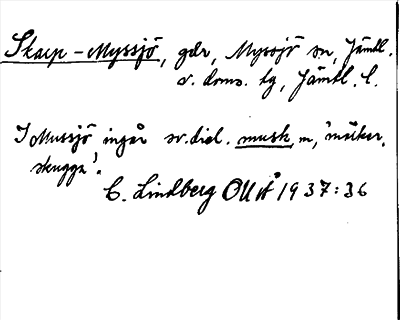 Skarp-Myssjö, går, Myssjö sn, Jämtl.
s. doms. tg, Jämtl. l.
I Mussjö ingår sv. dial. musk, m, 'mörker,
skugga'.
C. Lindberg OUÅ 1937:36